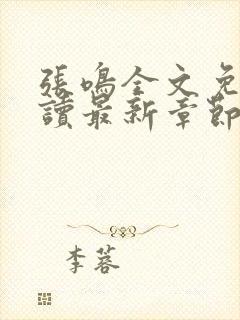 張鳴全文免
讀最新章節
李蓉